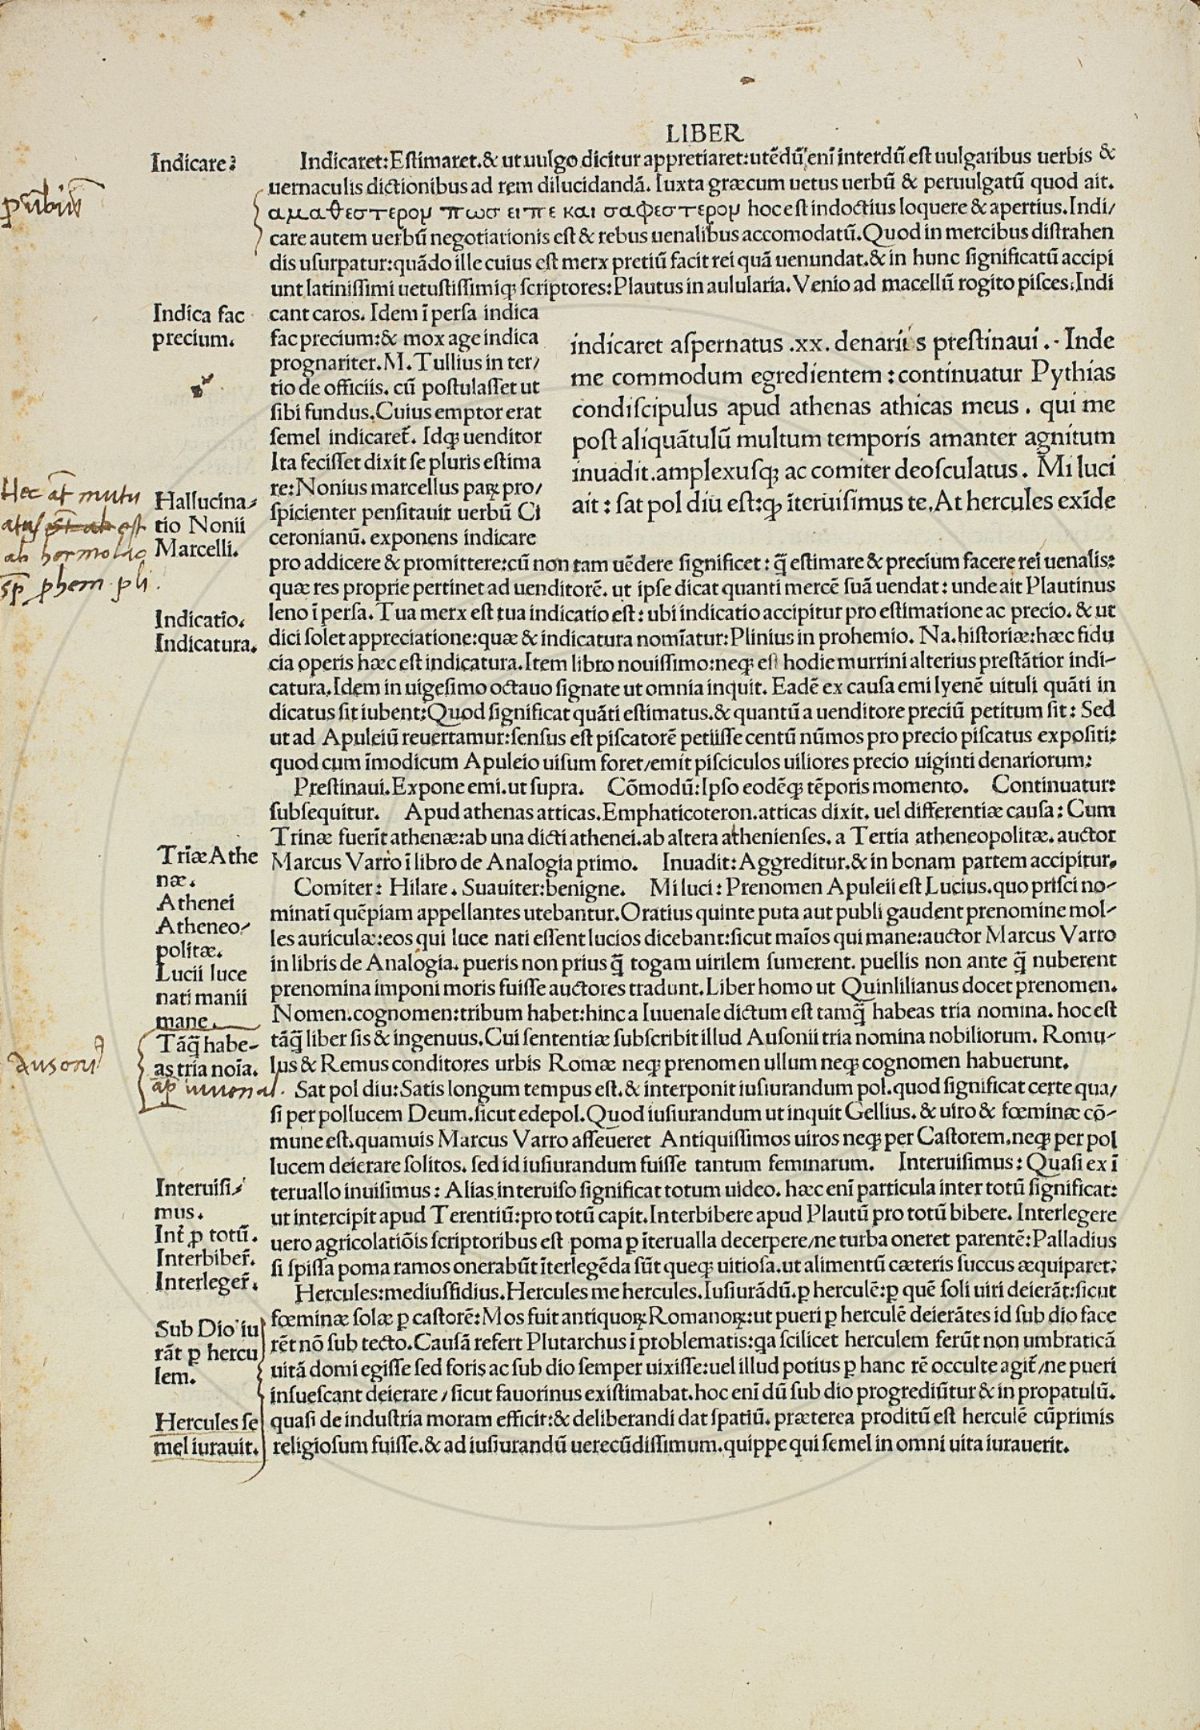 LIBER
Indicare:
Indicaret:Estimaret.& ut uulgo dicitur appretiaret:utēdū eni interdū est uulgaribus uerbis &
uernaculis dictionibus ad rem dilucidandā. Iuxta græcum uetus uerbū & peruulgatū quod ait.
αμαθεστερομ πωσ ειπε και σαφεστερομ hoc est indoctius loquere & apertius. Indi/
care autem uerbū negotiationis est & rebus uenalibus accomodatū. Quod in mercibus distrahen
dis usurpatur: quādo ille cuius est merx pretiū facit rei quā uenundat. & in hunc significatū accipi
unt latinissimi uetustissimiq; scriptores: Plautus in aulularia. Venio ad macellū rogito pisces. Indi
Indica fac
precium.
cant caros. Idem ī persa indica
fac precium: & mox age indica
prognariter. M. Tullius in ter/
tio de officiis. cū postulasset ut
sibi fundus. Cuius emptor erat
semel indicaret̄. Idq; uenditor
Ita fecisset dixit se pluris estima
re: Nonius marcellus paꝝ pro/
spicienter pensitauit uerbū Ci
ceronianū. exponens indicare
indicaret aspernatus .xx. denariis prestinaui . Inde
me commodum egredientem : continuatur Pythias
condiscipulus apud athenas athicas meus . qui me
post aliquātulū multum temporis amanter agnitum
inuadit. amplexusq; ac comiter deosculatus . Mi luci
ait : sat pol diu est: q̨ īteruisimus te. At hercules exīde
Hallucina/
tio Nonii
Marcelli.
Hec at mutu
atus est
ab hermolao
pli.
pro addicere & promittere: cū non tam uēdere significet : q̄ estimare & precium facere rei uenalis:
quæ res proprie pertinet ad uenditorē. ut ipse dicat quanti mercē suā uendat : unde ait Plautinus
leno ī persa. Tua merx est tua indicatio est : ubi indicatio accipitur pro estimatione ac precio. & ut
Indicatio.
Indicatura.
dici solet appreciatione: quæ & indicatura nomīatur: Plinius in prohemio. Na. historiæ: hæc fidu
cia operis hæc est indicatura. Item libro nouissimo: neq; est hodie murrini alterius prestātior indi-
catura. Idem in uigesimo octauo signate ut omnia inquit. Eadē ex causa emi lyenē uituli quāti in
dicatus sit iubent: Quod significat quāti estimatus. & quantū a uenditore preciū petitum sit : Sed
ut ad Apuleiū reuertamur: sensus est piscatorē petiisse centū nūmos pro precio piscatus expositi:
quod cum īmodicum Apuleio uisum foret/ emit pisciculos uiliores precio uiginti denariorum:
Prestinaui. Expone emi. ut supra. Cōmodū: Ipso eodēq; tēporis momento. Continuatur:
subsequitur. Apud athenas atticas. Emphaticoteron. atticas dixit. uel differentiæ causa : Cum
Trinæ fuerīt athenæ: ab una dicti athenei. ab altera athenienses. a Tertia atheneopolitæ. auctor
Marcus Varro ī libro de Analogia primo. Inuadit: Aggreditur. & in bonam partem accipitur.
Trīæ Athe
næ.
Athenei
Atheneo/
politæ.
Lucii luce
nati manii
mane.
Comiter: Hilare. Suauiter: benigne. Mi luci : Prenomen Apuleii est Lucius. quo prisci no-
minati quēpiam appellantes utebantur. Oratius quinte puta aut publi gaudent prenomine mol-
les auriculæ: eos qui luce nati essent lucios dicebant: sicut maīos qui mane: auctor Marcus Varro
in libris de Analogia. pueris non prius q̄ togam uirilem sumerent. puellis non ante q̄ nuberent
prenomina imponi moris fuisse auctores tradunt. Liber homo ut Quinlilianus docet prenomen.
Nomen. cognomen: tribum habet: hinc a Iuuenale dictum est tamq̄ habeas tria nomina. hoc est
tāq̄ liber sis & ingenuus. Cui sententiæ subscribit illud Ausonii tria nomina nobiliorum. Romu-
lus & Remus conditores urbis Romæ neq; prenomen ullum neq; cognomen habuerunt.
Tāq̄ habe-
as tria noīa.
Sat pol diu: Satis longum tempus est. & interponit iusiurandum pol. quod significat certe qua/
si per pollucem Deum. sicut edepol. Quod iusiurandum ut inquit Gellius. & uiro & fœminæ cō-
mune est. quamuis Marcus Varro asseueret Antiquissimos uiros neq; per Castorem. neq; per pol
lucem deierare solitos. sed id iusiurandum fuisse tantum feminarum. Interuisimus : Quasi ex ī
teruallo inuisimus : Alias interuiso significat totum uideo. hæc eni particula inter totū significat:
ut intercipit apud Terentiū: pro totū capit. Interbibere apud Plautū pro totū bibere. Interlegere
uero agricolatiōis scriptoribus est poma ꝑ īterualla decerpere/ ne turba oneret parentē: Palladius
si spissa poma ramos onerabūt īterlegēda sūt queq; uitiosa. ut alimentū cæteris succus æquiparet:
Interuisi/
mus.
Int̄ ꝑ totū.
Interbiber̄.
Interleger̄.
Hercules: mediusfidius. Hercules me hercules. Iusiurādū. ꝑ herculē: ꝑ quē soli uiri deierāt: sicut
fœminæ solæ ꝑ castorē: Mos fuit antiquoꝝ Romanoꝝ: ut pueri ꝑ herculē deierātes id sub dio face
rēt nō sub tecto. Causā refert Plutarchus ī problematis: qa scilicet herculem ferūt non umbraticā
uitā domi egisse sed foris ac sub dio semper uixisse: uel illud potius ꝑ hanc rē occulte agit̄/ ne pueri
insuescant deierare/ sicut fauorinus existimabat. hoc eni dū sub dio progrediūtur & in propatulū.
quasi de industria moram efficit: & deliberandi dat spatiū. præterea proditū est herculē cūprimis
religiosum fuisse. & ad iusiurandū uerecūdissimum. quippe qui semel in omni uita iurauerit.
Sub Dio iu
rāt ꝑ hercu
lem.
Hercules se
mel iurauit.